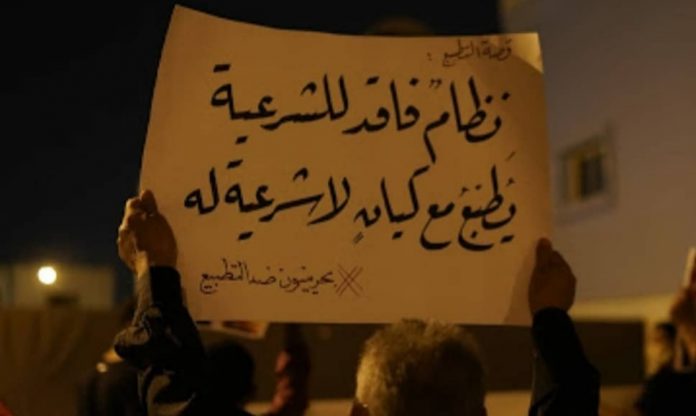 قصة التطبيع :
نظامٌ فاقد للشرعية
يُطبّعُ مع كيانٍ لا شرعية له
#بحرينيون_ضد_التطبيع